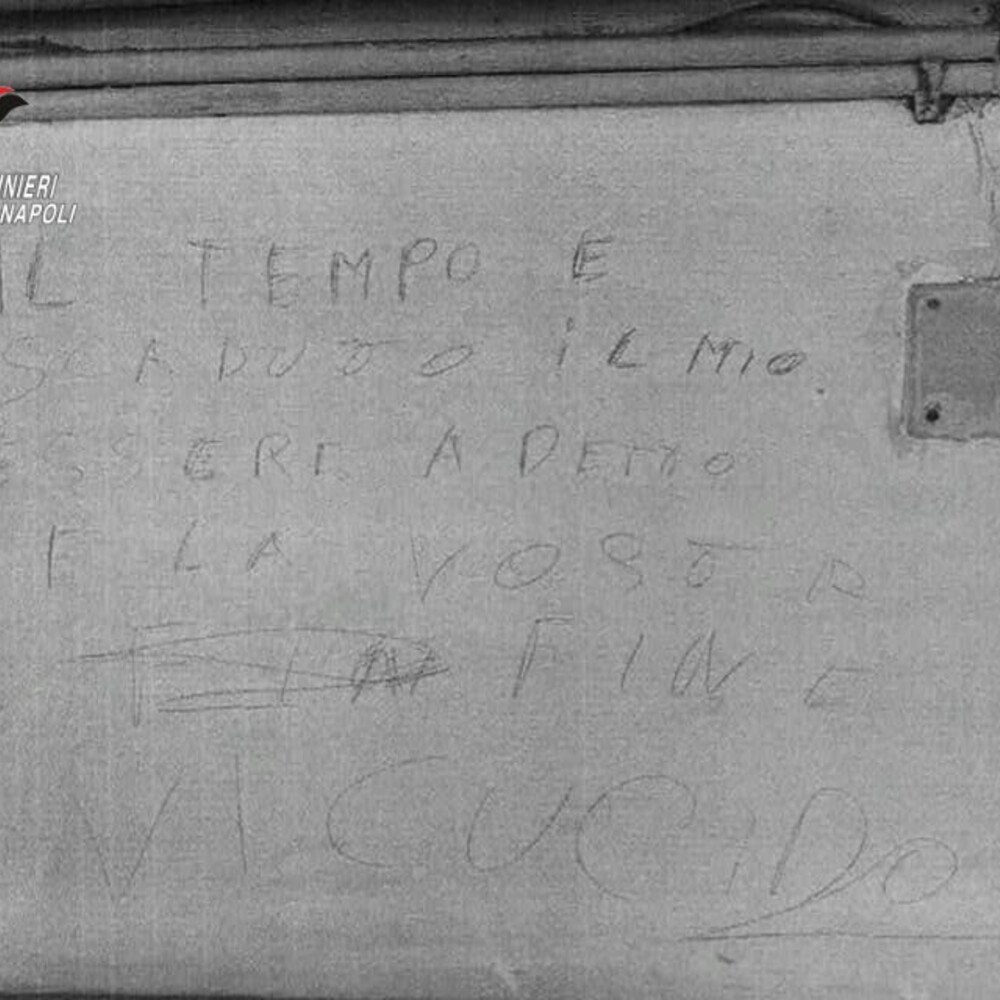 NIERI
NAPOLI
IL TEMPO E
SCADUTO iL MIO.
ESSERE A DETTO
E LA VOSTR
FIN FINE
VI CUCiDO